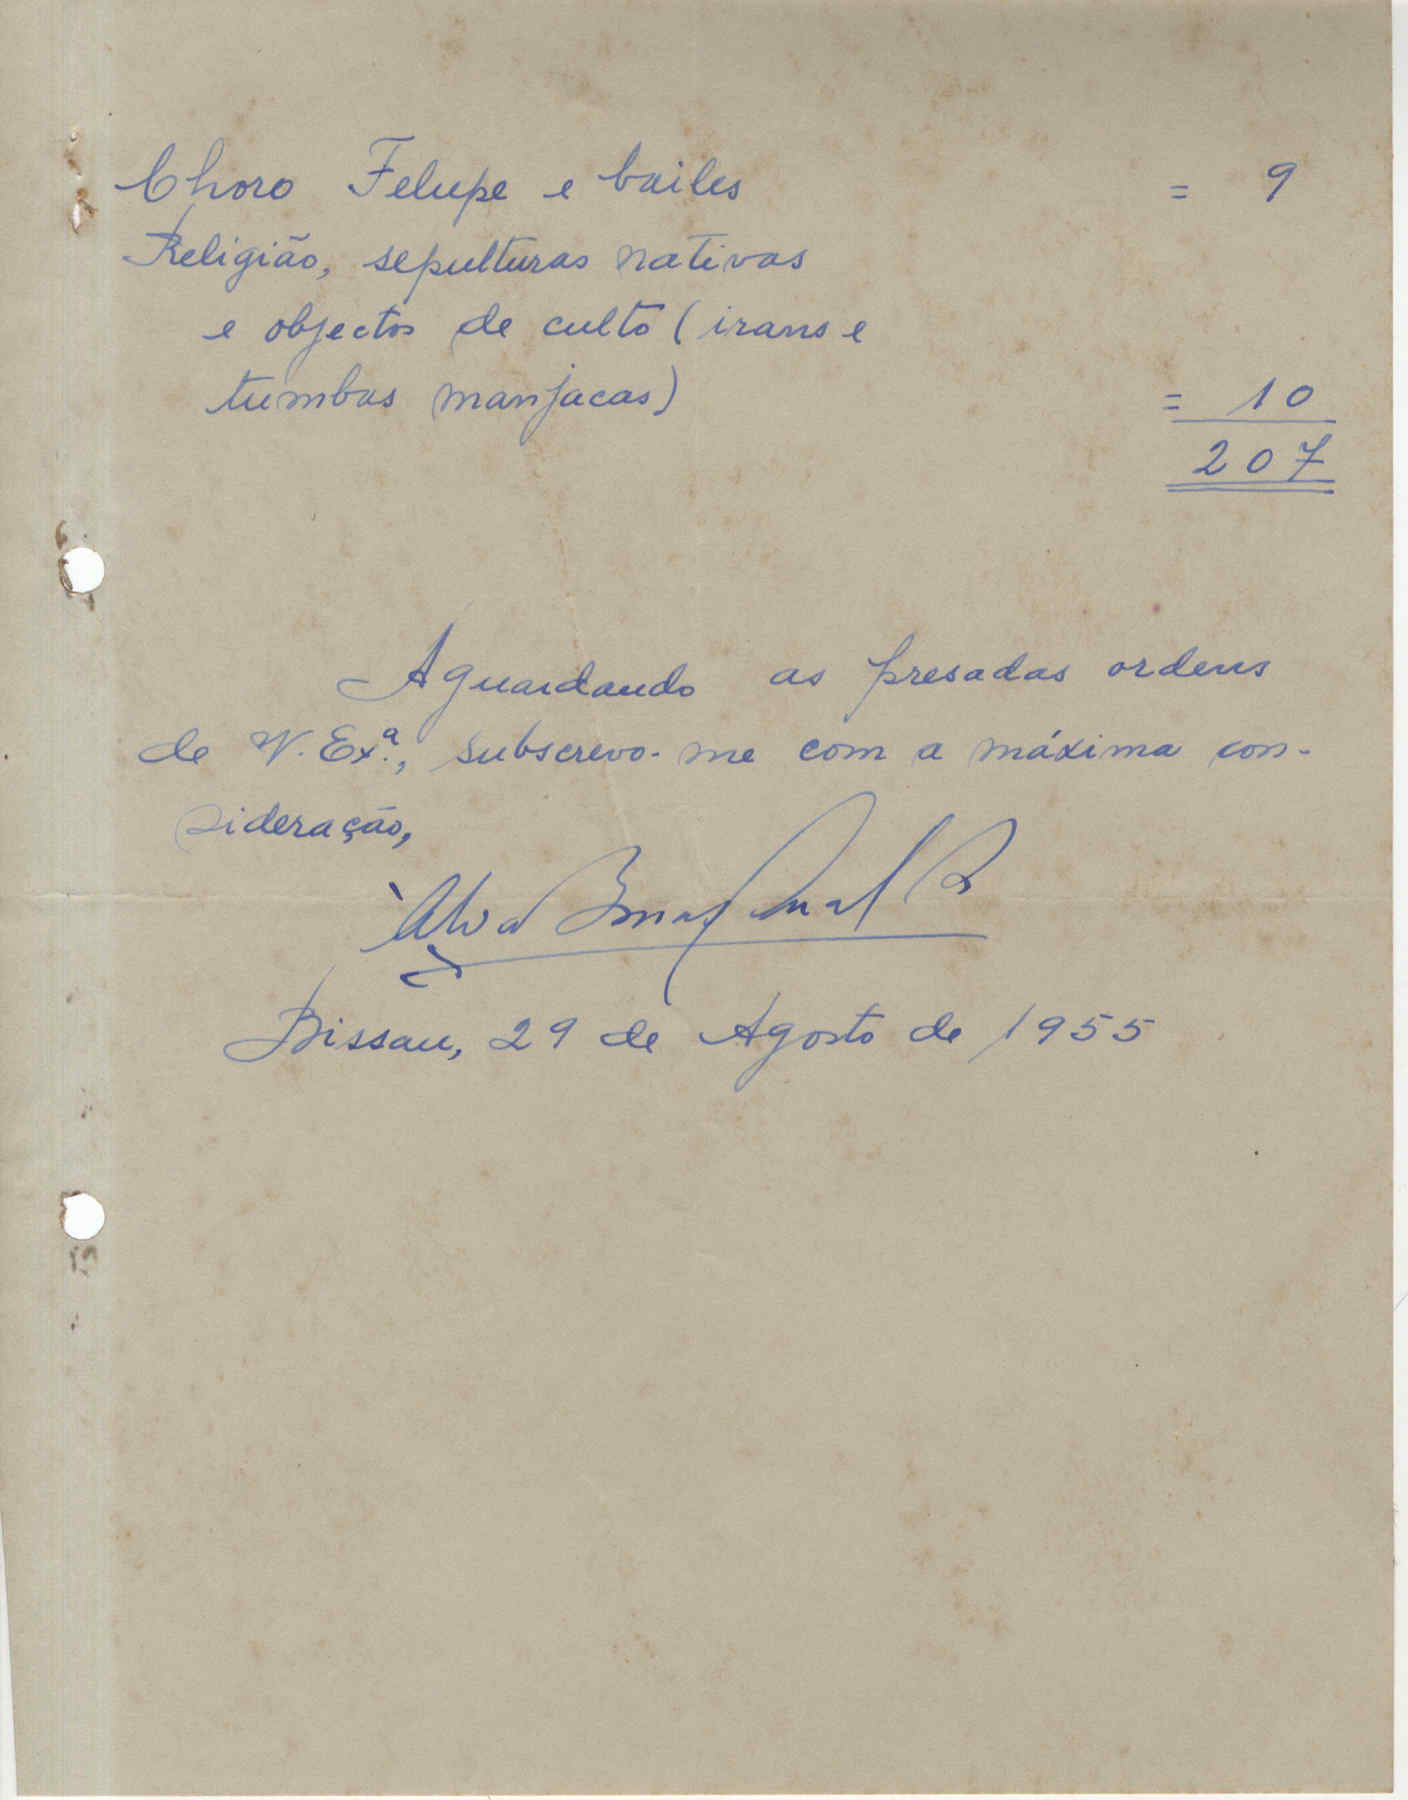 Choro Felupe e bailes = 9
Religião, sepulturas nativas
e objectos de culto (irans e
tumbas manjacas) = 10
207
Aguardando as presadas ordens
de V. Exª., subscrevo-me com a máxima con-
sideração,
Bissau, 29 de Agosto de 1955